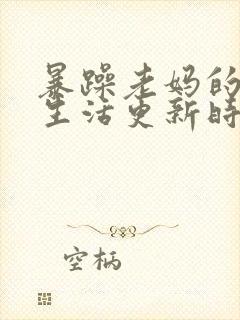 暴躁老妈的
生活更新时
空柄